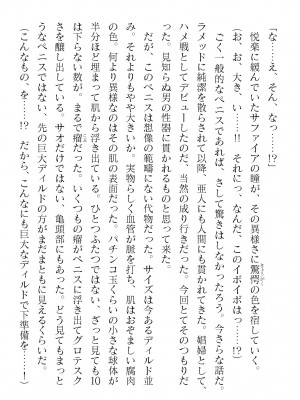 「な……え、そん、なっ……!?」
悦楽に緩んでいたサファイアの瞳が、その異様さに驚愕の色を宿していく。
「お、お、大き、い……!!　それに、なんだ、このイボイボはっ……!?」
ごく一般的なペニスであれば、さして驚きはしなかったろう。今さらな話だ。
ラメッドに純潔を散らされて以降、亜人にも人間にも貫かれてきた。娼婦として、
ハメ戦にデビューしたのだ、当然の成り行きだった。今回とてそのつもりだ
った。見知らぬ男の性器に貫かれるものと思って来た。
だが、このペニスは想像の範疇にない代物だった。サイズは今あるディルド並
み。それよりもやや大きいか。実物らしく血管が脈を打ち、肌はおぞましい腐肉
の色。何より異様なのはその肌の表面だった。パチンコ玉くらいの小さな球体が
半分ほど埋まって肌から浮き出ている。ひとつふたつではない、ざっと見ても10
は下らない数が。まるで瘤だった。いくつもの瘤がペニスに浮き出てグロテスク
さを醸し出している。サオだけではない、亀頭部にもあった。どう見てもまっと
うなペニスではない、先の巨大ディルドの方がまだまともに見えるくらいだ。
（こんなもの、を……!?　だから、こんなにも巨大なディルドで下準備を……！）